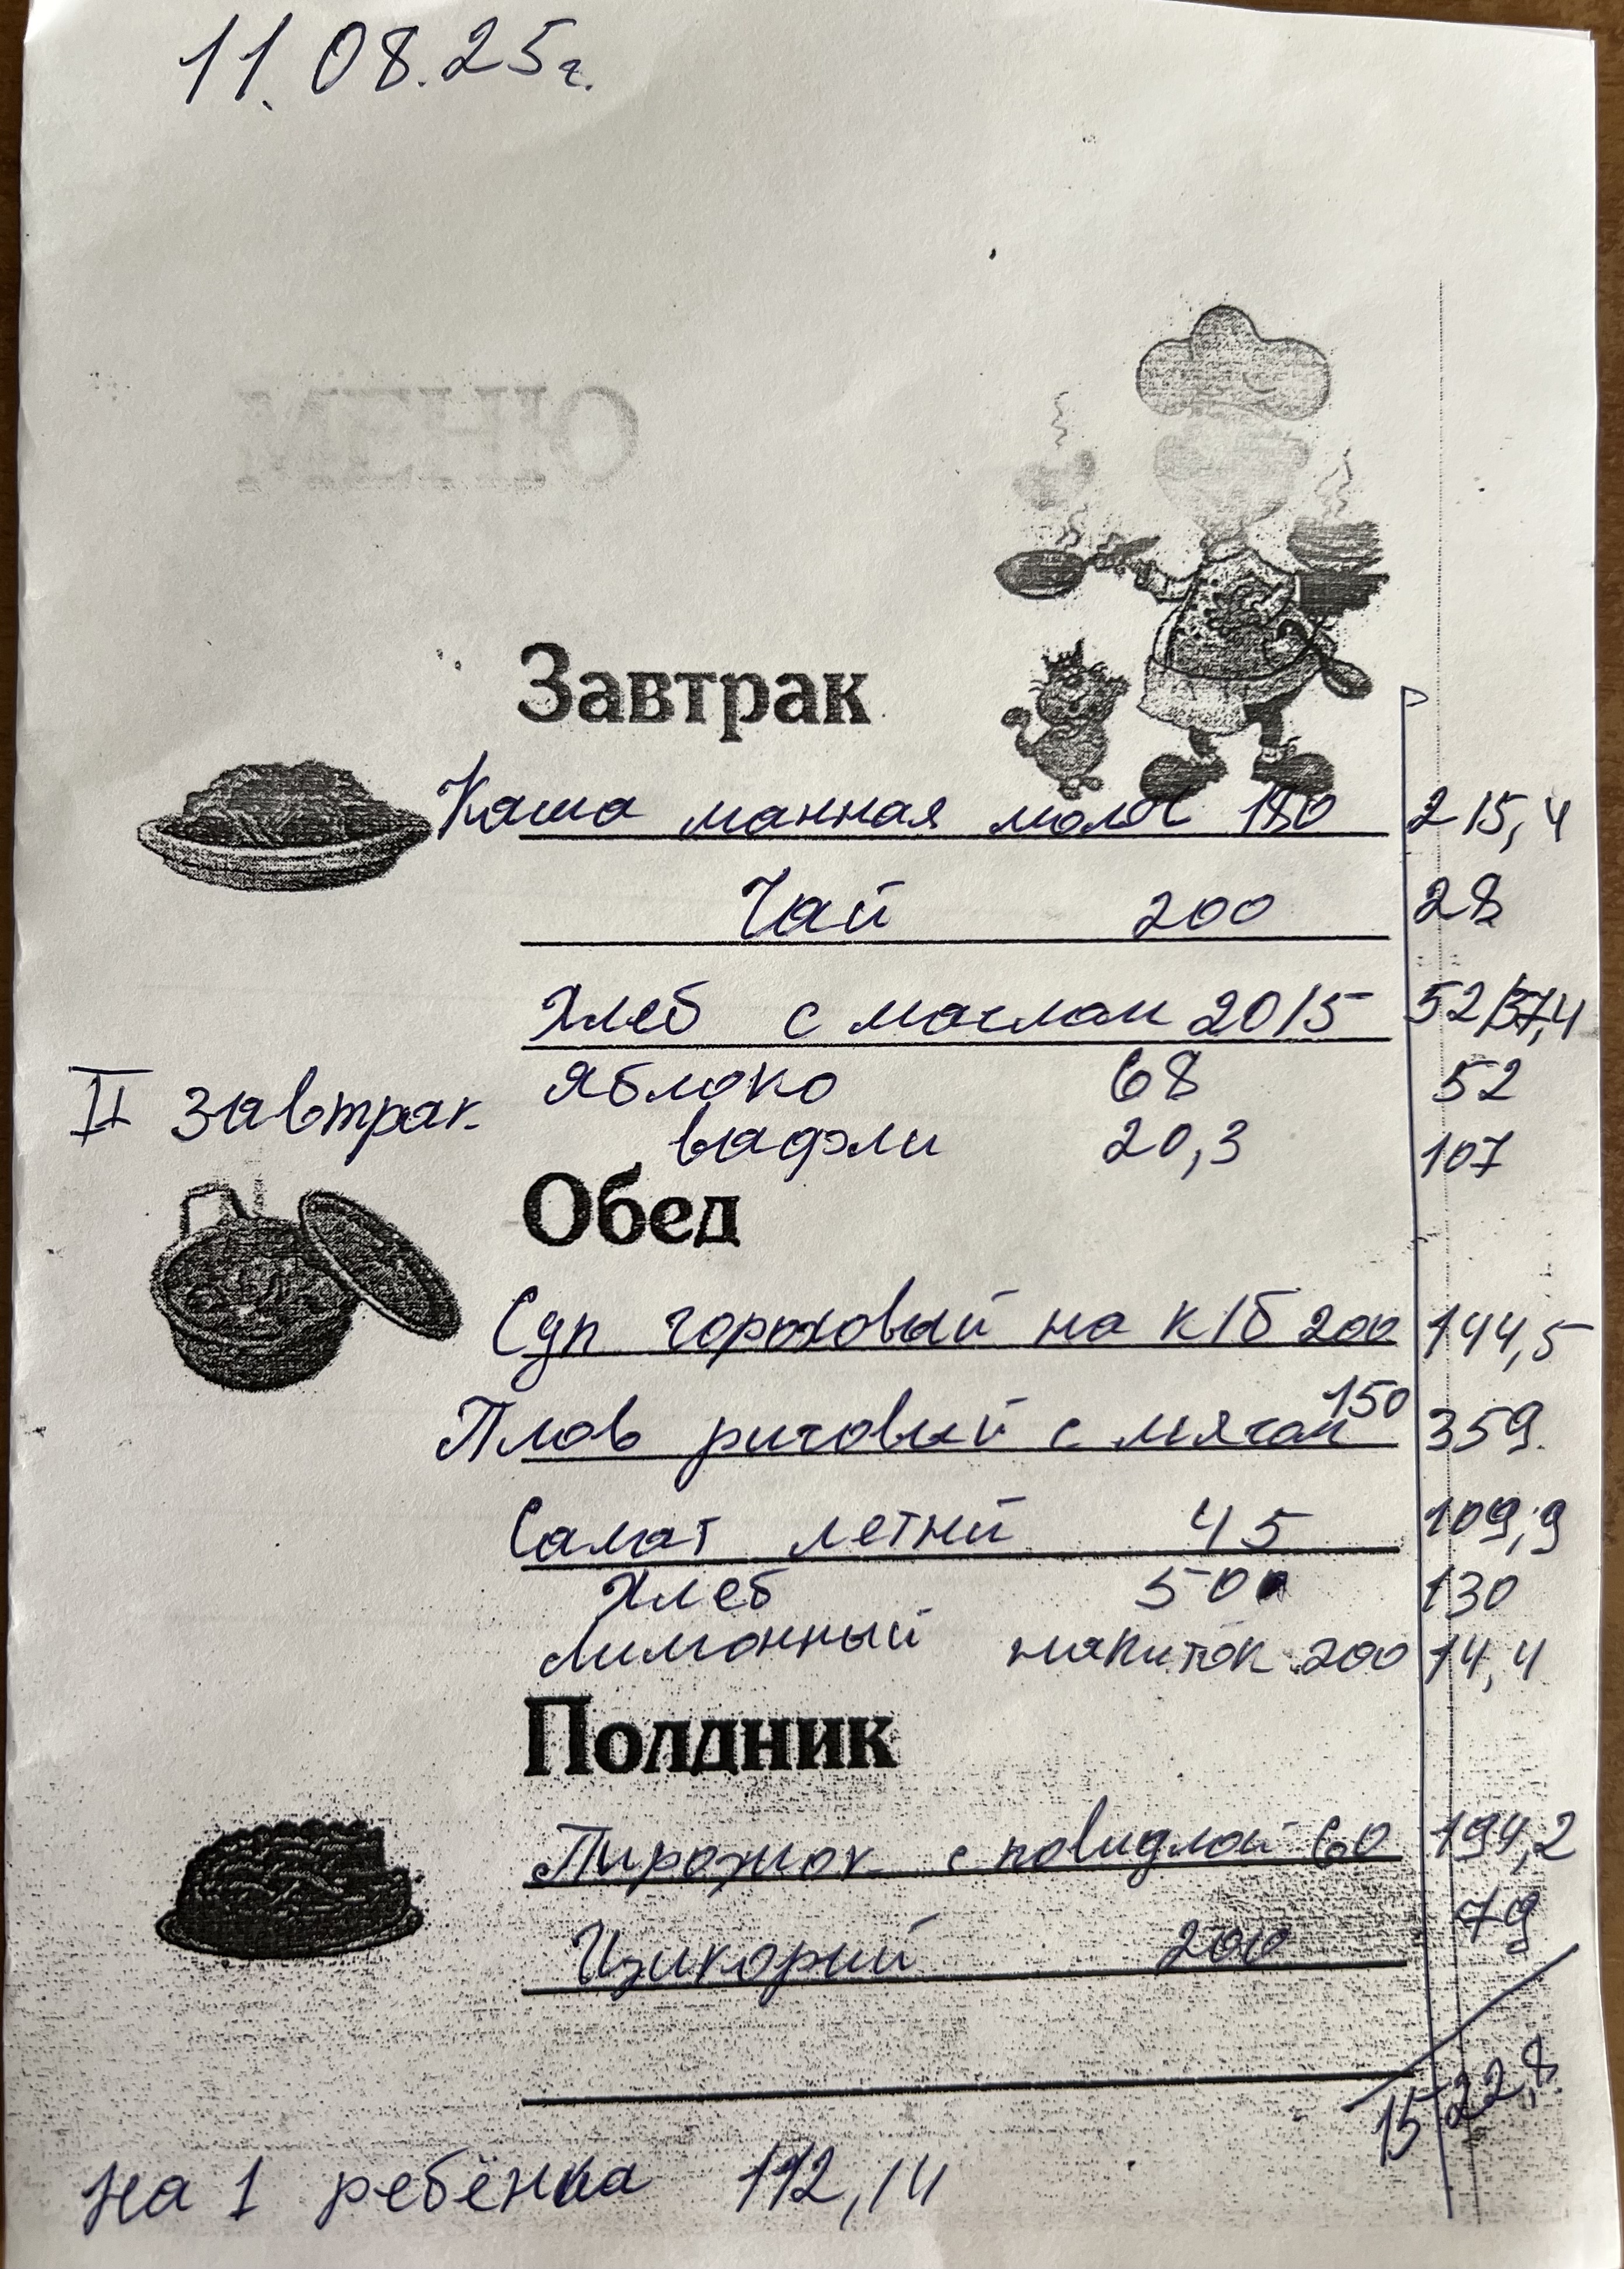 11.08.25г.
МЕНЮ
Завтрак
Каша манная молоч 180 215,4
Чай 200 28
Хлеб с маслом 20/5 52/37,4
II завтрак Яблоко 68 52
вафли 20,3 107
Обед
Суп гороховый на к/б 200 144,5
Плов рисовый с мясом 150 359
Салат летний 45 109,9
Хлеб 50 130
Лимонный напиток 200 14,4
Полдник
Пирожок с повидлом 60 194,2
Цикорий 200 79
1522,8
на 1 ребёнка 112,14